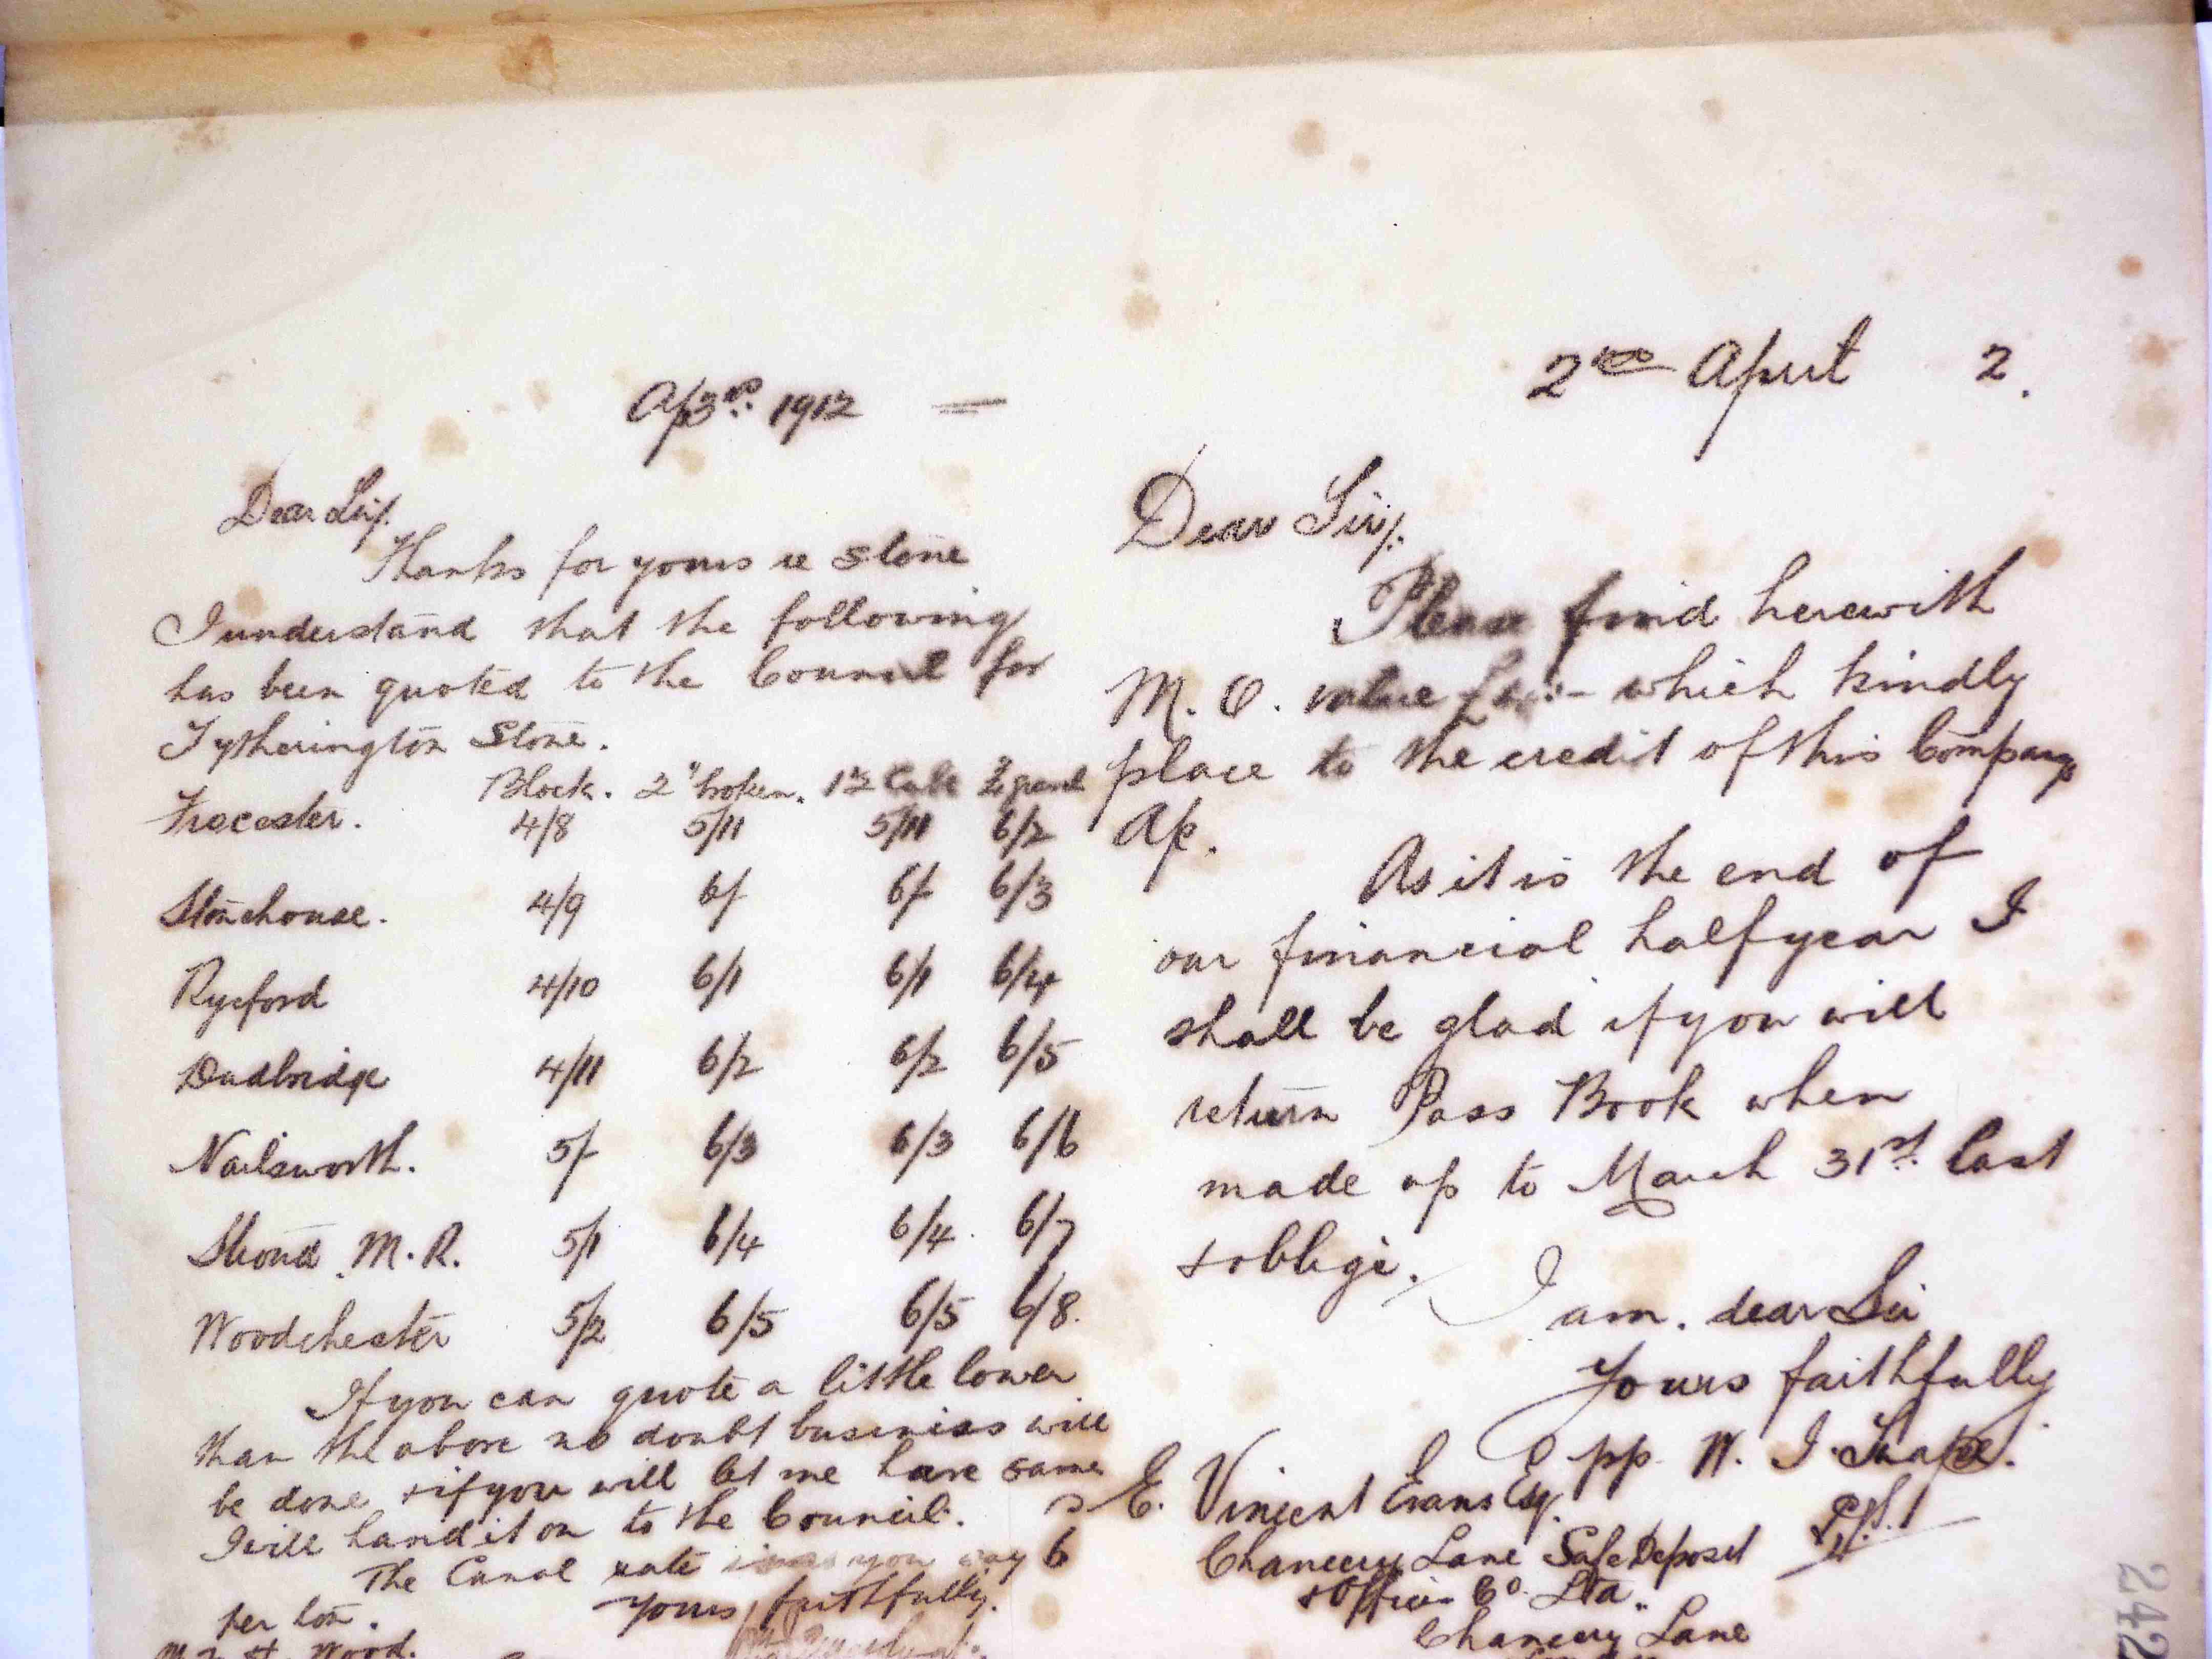 Ap 3rd. 1912
Dear Sir/.
Thanks for yours re stone
I understand that the following
has been quoted to the Council for
Tytherington Stone.
Block. 2" broken. 1½ Cube
Frocester. 4/8 5/11 5/11 6/2
Stonehouse. 4/9 6/ 6/ 6/3
Ryeford 4/10 6/1 6/1 6/4
Dudbridge 4/11 6/2 6/2 6/5
Nailsworth. 5/ 6/3 6/3 6/6
Stroud M.R. 5/1 6/4 6/4. 6/7
Woodchester 5/2 6/5 6/5 6/8.
If you can quote a little lower
than the above no doubt business will
be done, & if you will let me have same
I will hand it on to the Council.
The Canal rate you say 6
per ton.
Yours faithfully.
Wood.
2nd April 2.
Dear Sir/.
Please find herewith
M.O. value which kindly
place to the credit of this Company
A/c.
As it is the end of
our financial half year I
shall be glad if you will
return Pass Book when
made up to March 31st. last
& oblige.
I am. dear Sir
Yours faithfully
pp. W. J. Snape.
E. Vincent Evans Esq.
Chancery Lane Safe Deposit
& Offices Co. Ltd.
Chancery Lane
242